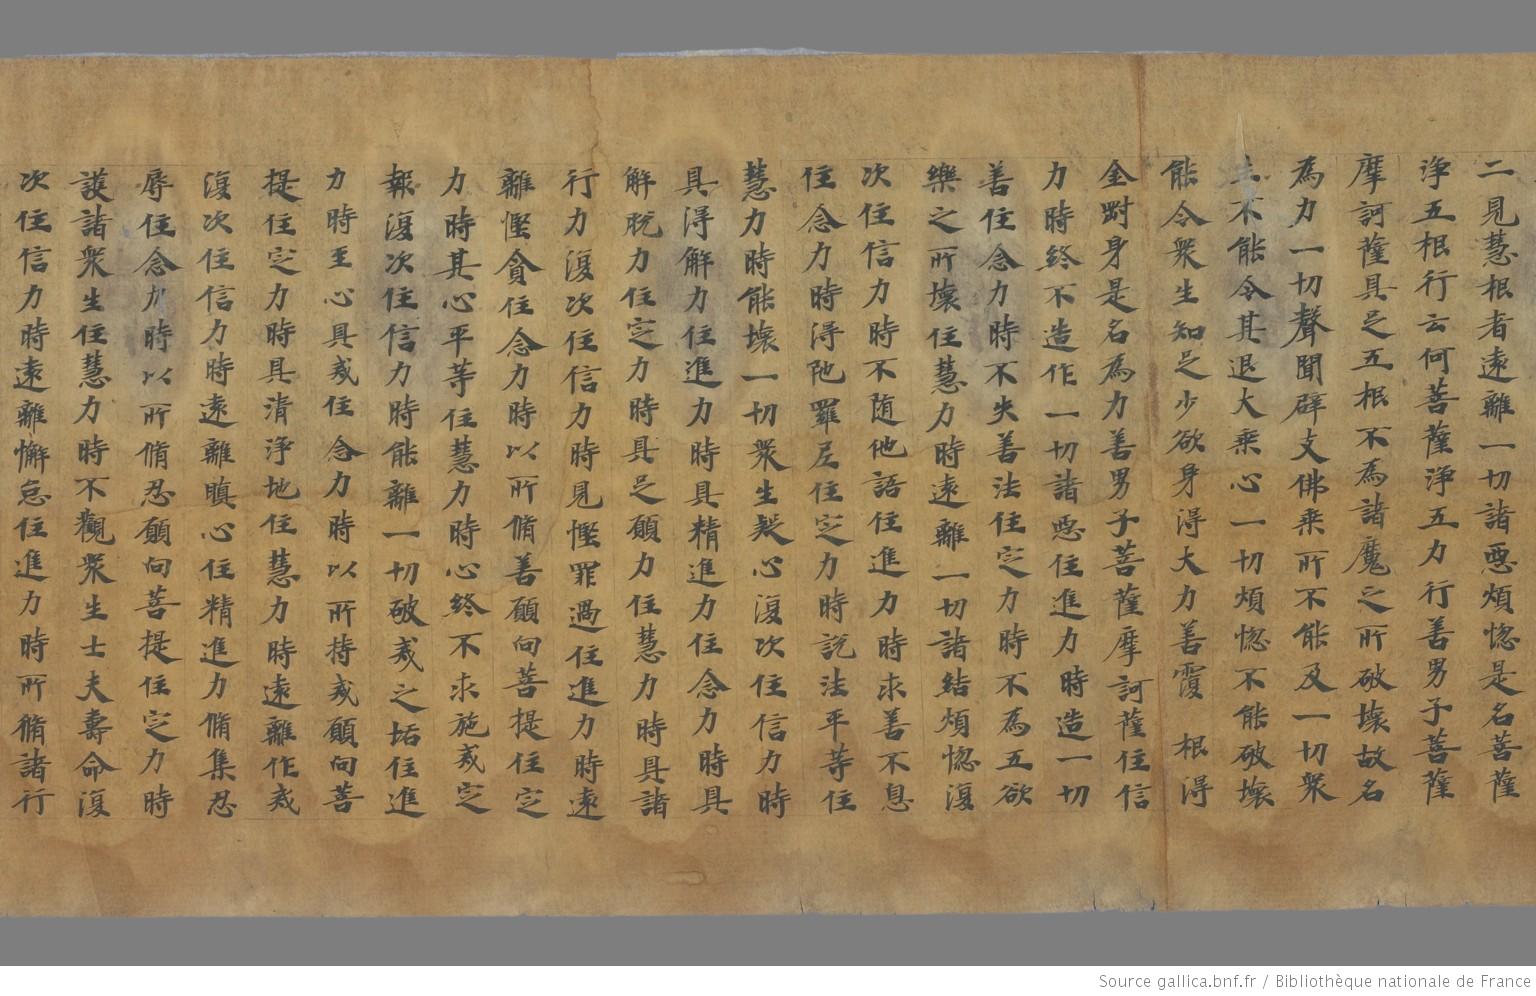 二見慧根者遠離一切諸惡煩惚是名菩薩
淨五根行云何菩薩淨五力行善男子菩薩
摩訶薩具足五根不為諸魔之所破壞故名
為力一切聲聞辟支佛乘所不能及一切衆
生不能令其退大乘心一切煩惚不能破壞
能令衆生知足少欲身得大力善覆 根得
金對身是名為力善男子菩薩摩訶薩住信
力時終不造作一切諸惡住進力時造一切
善住念力時不失善法住定力時不為五欲
樂之所壞住慧力時遠離一切諸結煩惚復
次住信力時不隨他語住進力時求善不息
住念力時得陁羅尼住定力時說法平等住
慧力時能壞一切衆生疑心復次住信力時
具得解力住進力時具精進力住念力時具
解脫力住定力時具足願力住慧力時具諸
行力復次住信力時見慳罪過住進力時遠
離慳貪住念力時以所脩善願向菩提住定
力時其心平等住慧力時心終不求施戒定
報復次住信力時能離一切破戒之垢住進
力時至心具戒住念力時以所持戒願向菩
提住定力時具清淨地住慧力時遠離作戒
復次住信力時遠離瞋心住精進力脩集忍
辱住念力時以所脩忍願向菩提住定力時
護諸衆生住慧力時不觀衆生士夫壽命復
次住信力時遠離懈怠住進力時所脩諸行
Source gallica.bnf.fr / Bibliothèque nationale de France